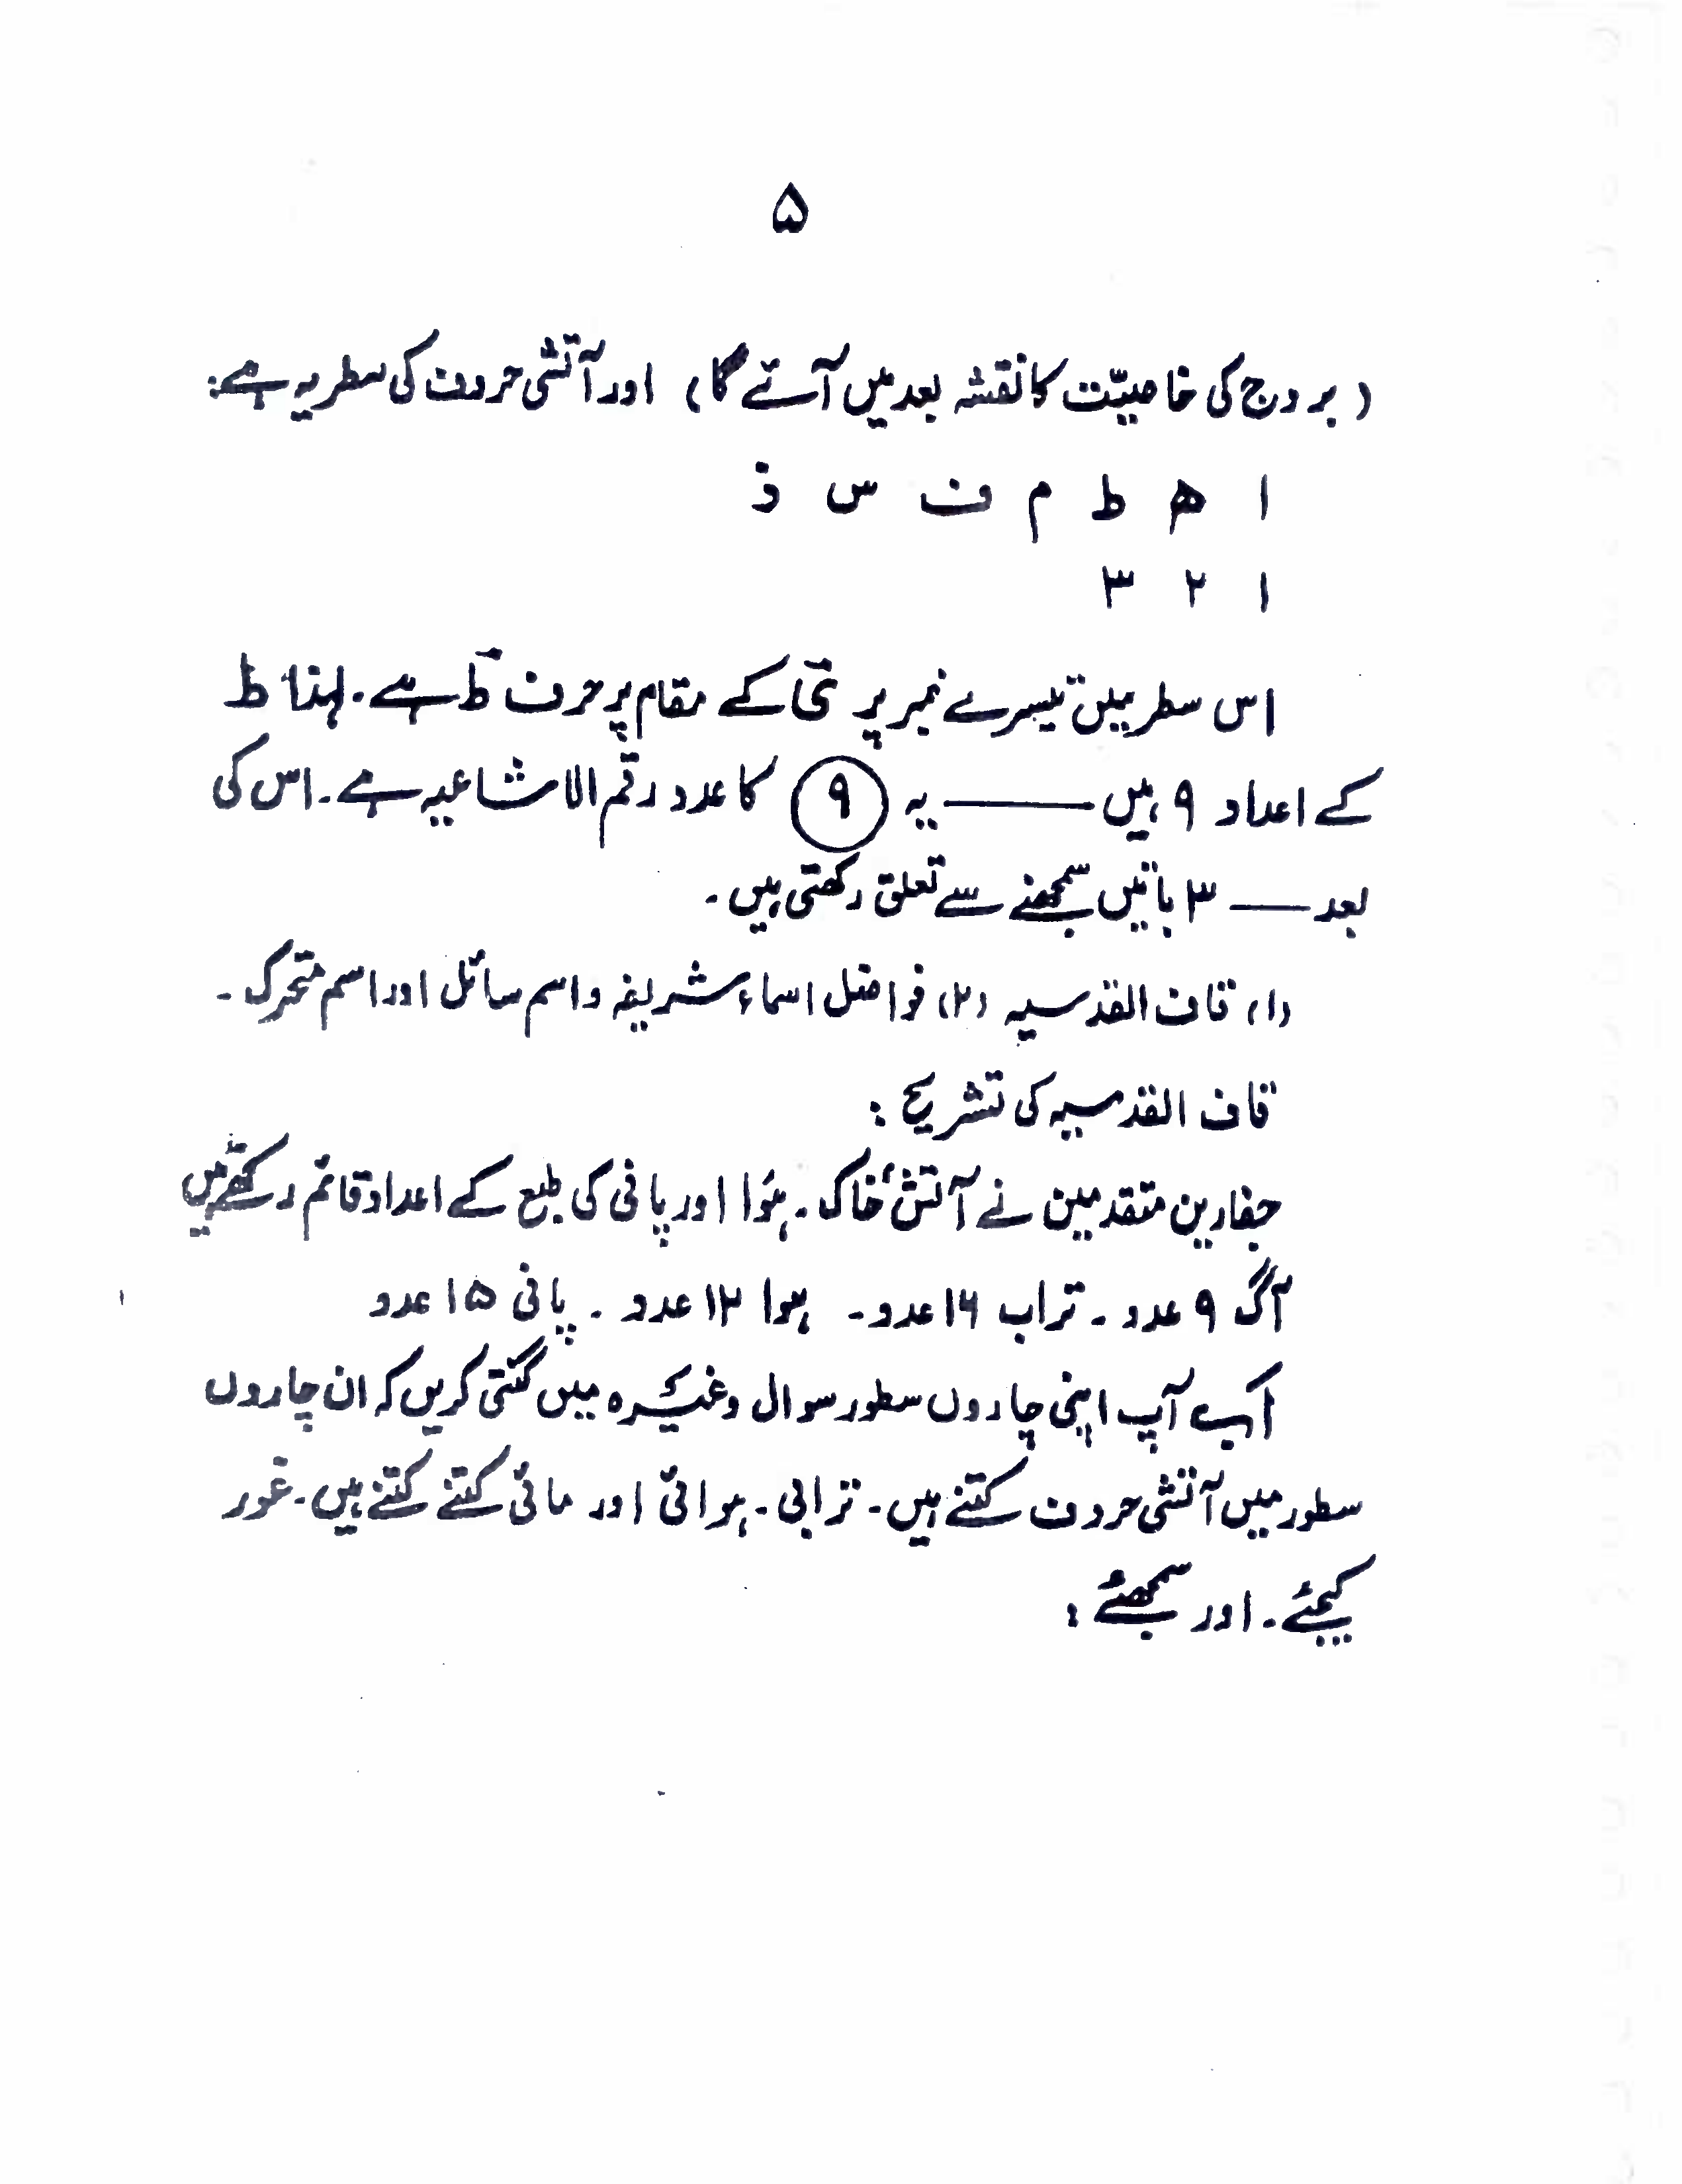 ۵
(بروج کی خاصیّت کا نقشہ بعد میں آئے گا) اور آتشی حروف کی سطر یہ ہے:
ا ھ ط م ف س ذ
۱ ۲ ۳
اس سطر میں تیسرے نمبر پر ی کے مقام پر حرف ط ہے۔ لہٰذا ط
کے اعداد ۹ ہیں ——— یہ ۹ کا عدد رقم الاشاعیہ ہے۔ اس کی
بعد — ۳ باتیں سمجھنے سے تعلق رکھتی ہیں۔
(۱) قاف القدسیہ (۲) فواضل اسماء شریفہ و اسم سائل اور اسم متحرک۔
قاف القدسیہ کی تشریح :
جفارین متقدمین نے آتش، خاک۔ ہوا اور پانی کی طبع کے اعداد قائم رکھے ہیں
آگ ۹ عدد۔ تراب ۱۶ عدد۔ ہوا ۱۲ عدد۔ پانی ۱۵ عدد
اب آپ اپنی چاروں سطور سوال وغیرہ میں گنتی کریں کہ ان چاروں
سطور میں آتشی حروف کتنے ہیں۔ ترابی۔ ہوائی اور مائی کتنے کتنے ہیں۔ غور
کیجئے۔ اور سمجھئے :